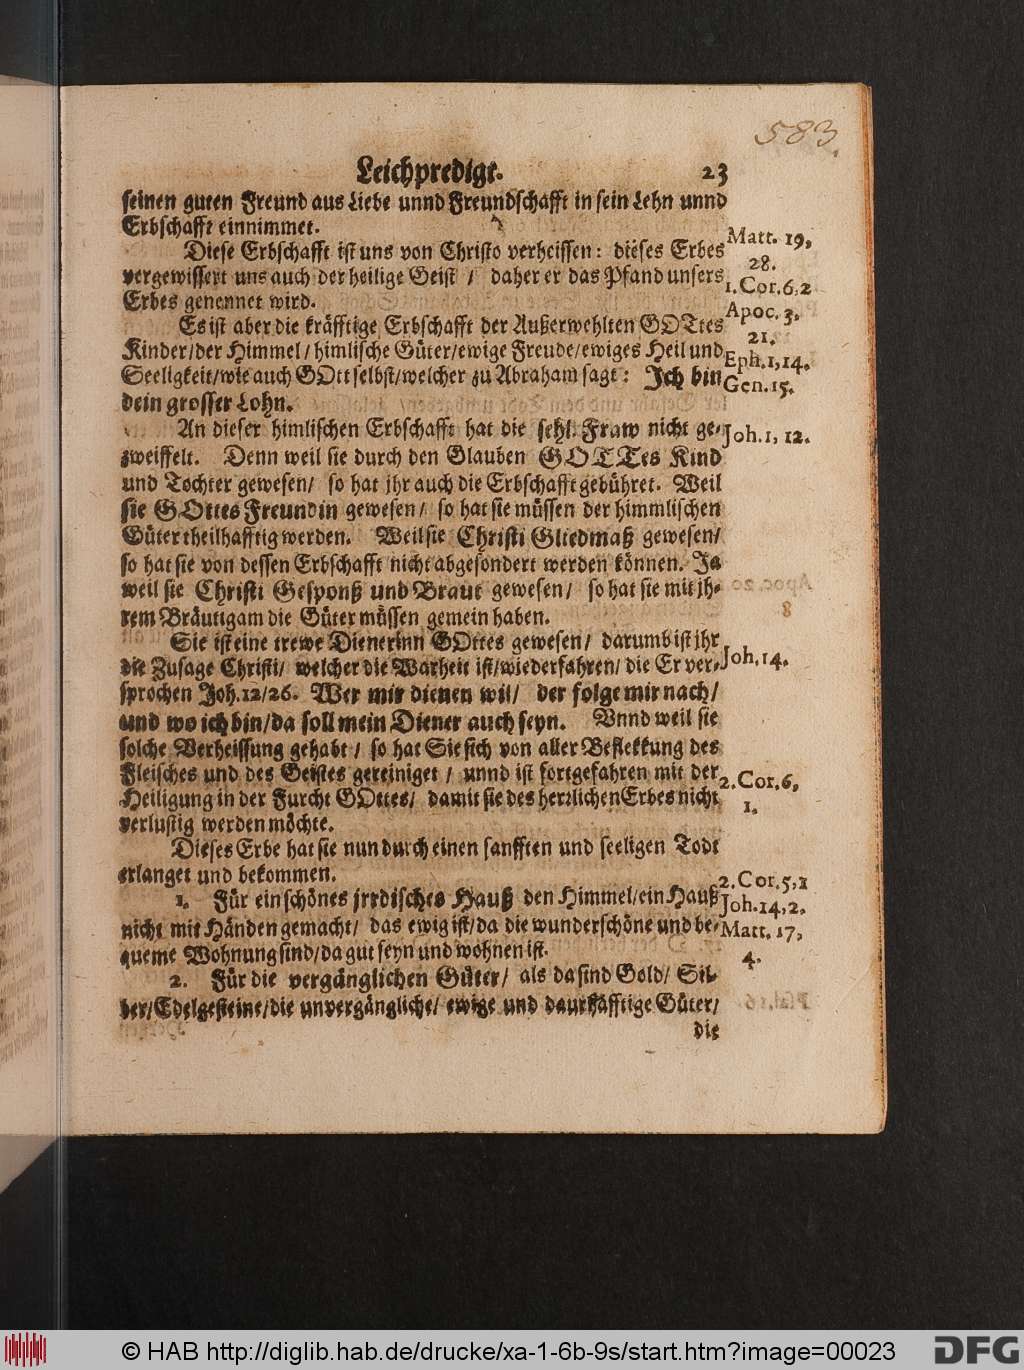 583.
Leichpredigt. 23
seinen guten Freund aus Liebe unnd Freundschafft in sein Lehn unnd
Erbschafft einnimmet.
Diese Erbschafft ist uns von Christo verheissen: dieses Erbes
Matt. 19,
28.
vergewissert uns auch der heilige Geist / daher er das Pfand unsers
1. Cor. 6, 2
Erbes genennet wird.
Apoc. 3,
21.
Es ist aber die kräfftige Erbschafft der Außerwehlten GOTtes
Kinder/der Himmel/himlische Güter/ewige Freude/ewiges Heil und
Eph. 1, 14.
Seeligkeit/wie auch GOtt selbst/welcher zu Abraham sagt: Ich bin
Gen. 15.
dein grosser Lohn.
An dieser himlischen Erbschafft hat die sehl. Fraw nicht ge-
Joh. 1, 12.
zweiffelt. Denn weil sie durch den Glauben GOTTes Kind
und Tochter gewesen/ so hat jhr auch die Erbschafft gebühret. Weil
sie GOttes Freundin gewesen/ so hat sie müssen der himmlischen
Güter theilhafftig werden. Weil sie Christi Gliedmaß gewesen/
so hat sie von dessen Erbschafft nicht abgesondert werden können. Ja
weil sie Christi Gesponß und Braut gewesen/ so hat sie mit jh-
rem Bräutigam die Güter müssen gemein haben.
Sie ist eine trewe Dienerinn GOttes gewesen/ darumb ist jhr
die Zusage Christi/ welcher die Warheit ist/wiederfahren/ die Er ver-
Joh. 14.
sprochen Joh. 12/26. Wer mir dienen wil/ der folge mir nach/
und wo ich bin/da soll mein Diener auch seyn. Unnd weil sie
solche Verheissung gehabt/ so hat Sie sich von aller Beflekkung des
Fleisches und des Geistes gereiniget/ unnd ist fortgefahren mit der
2. Cor. 6,
1.
Heiligung in der Furcht GOttes/ damit sie des herrlichen Erbes nicht
verlustig werden möchte.
Dieses Erbe hat sie nun durch einen sanfften und seeligen Todt
erlanget und bekommen.
2. Cor. 5, 1
1. Für ein schönes jrrdisches Hauß den Himmel/ein Hauß
Joh. 14, 2.
nicht mit Händen gemacht/ das ewig ist/da die wunderschöne und be-
Matt. 17,
4.
queme Wohnung sind/da gut seyn und wohnen ist.
2. Für die vergänglichen Güter/ als da sind Gold/ Sil-
ber/Edelgesteine/die unvergängliche/ ewige und daurhäfftige Güter/
die
© HAB http://diglib.hab.de/drucke/xa-1-6b-9s/start.htm?image=00023
DFG